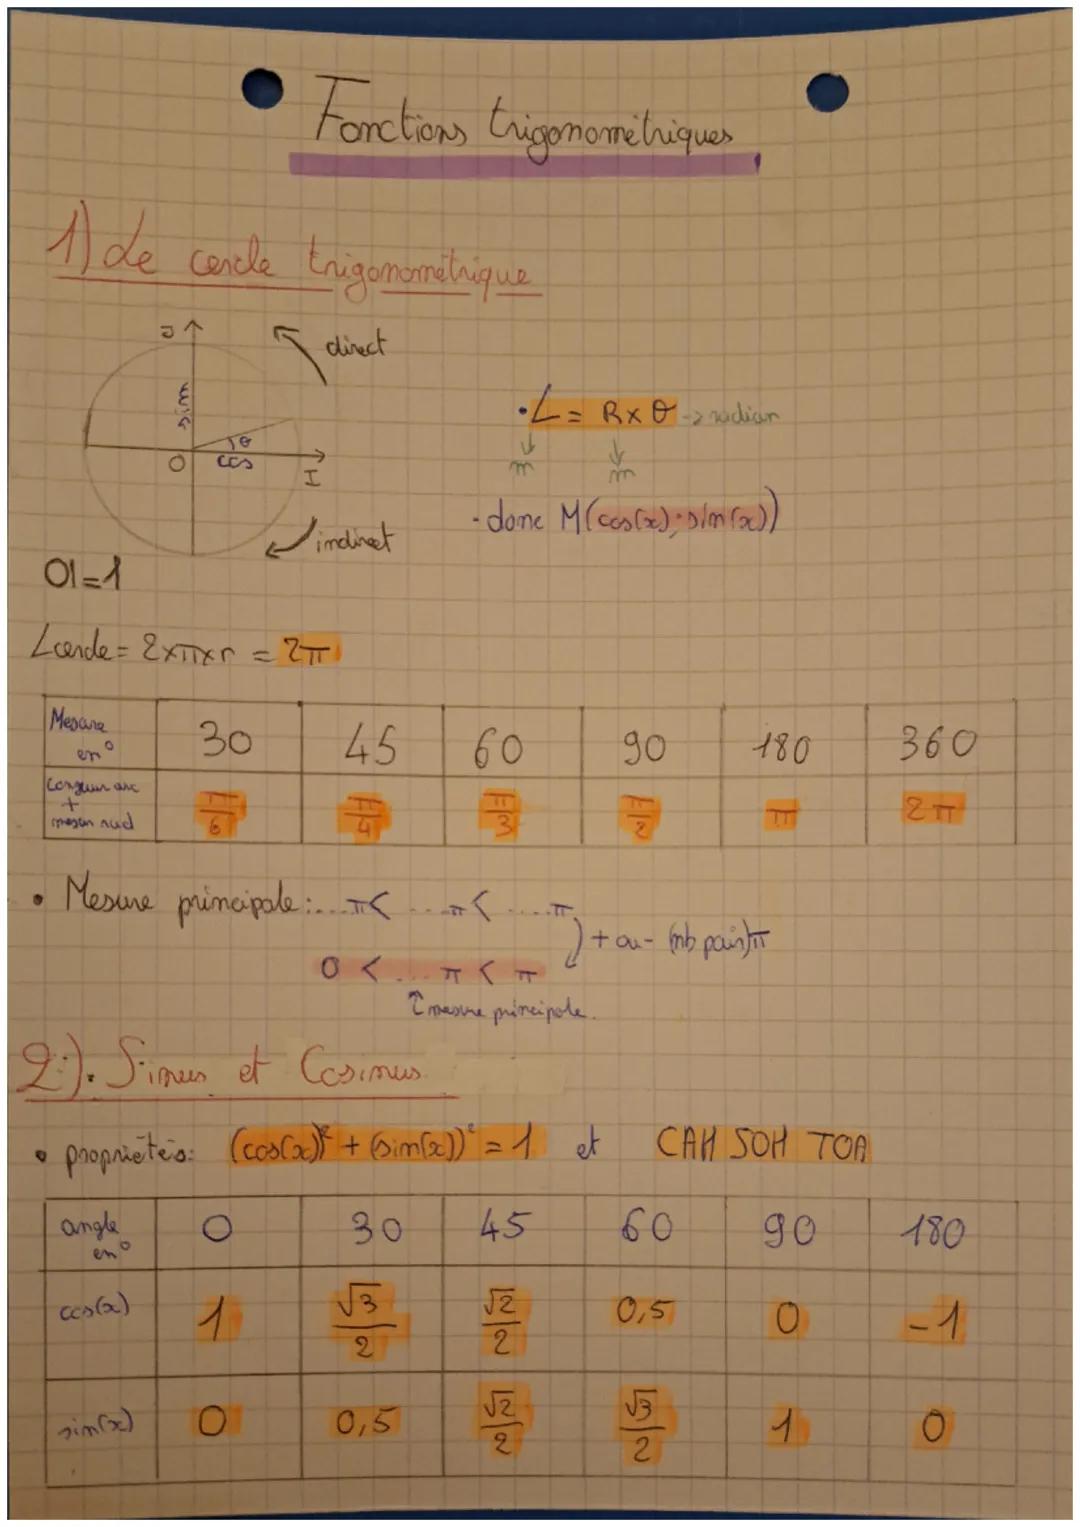 Fonctions trigonométriques
1) Le cercle trigonométrique
J
direct
sin
θ
O
cos
I
indirect
• L = R x θ -> radian
m
m
- donc M(cos(x); sin(x))
OI=1
Lcercle = 2xπxr = 2π
Mesure en ° 30 45 60 90 180 360
Longueur arc + mesure rad π/6 π/4 π/3 π/2 π 2π
• Mesure principale: ...π< ...π< ....π
+ ou - (nb pair)π
0 < ... π < π
↑ mesure principale.
2). Sinus et Cosinus
• propriétés: (cos(x))² + (sin(x))² = 1 et CAH SOH TOA
angle en ° 0 30 45 60 90 180
cos(x) 1 √3/2 √2/2 0,5 0 -1
sin(x) 0 0,5 √2/2 √3/2 1 0